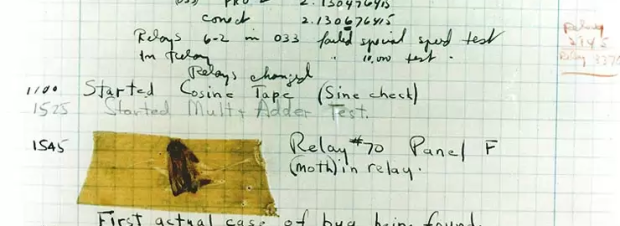 033 PRO 2 2.130476415
conect 2.130676415
Relays 6-2 in 033 failed special speed test
In Relay " 10,000 test.
Relays changed
Relay
3145
Relay 3370
1100 Started Cosine Tape (Sine check)
1525 Started Mult + Adder Test.
1545 Relay #70 Panel F
(moth) in relay.
First actual case of bug being found.